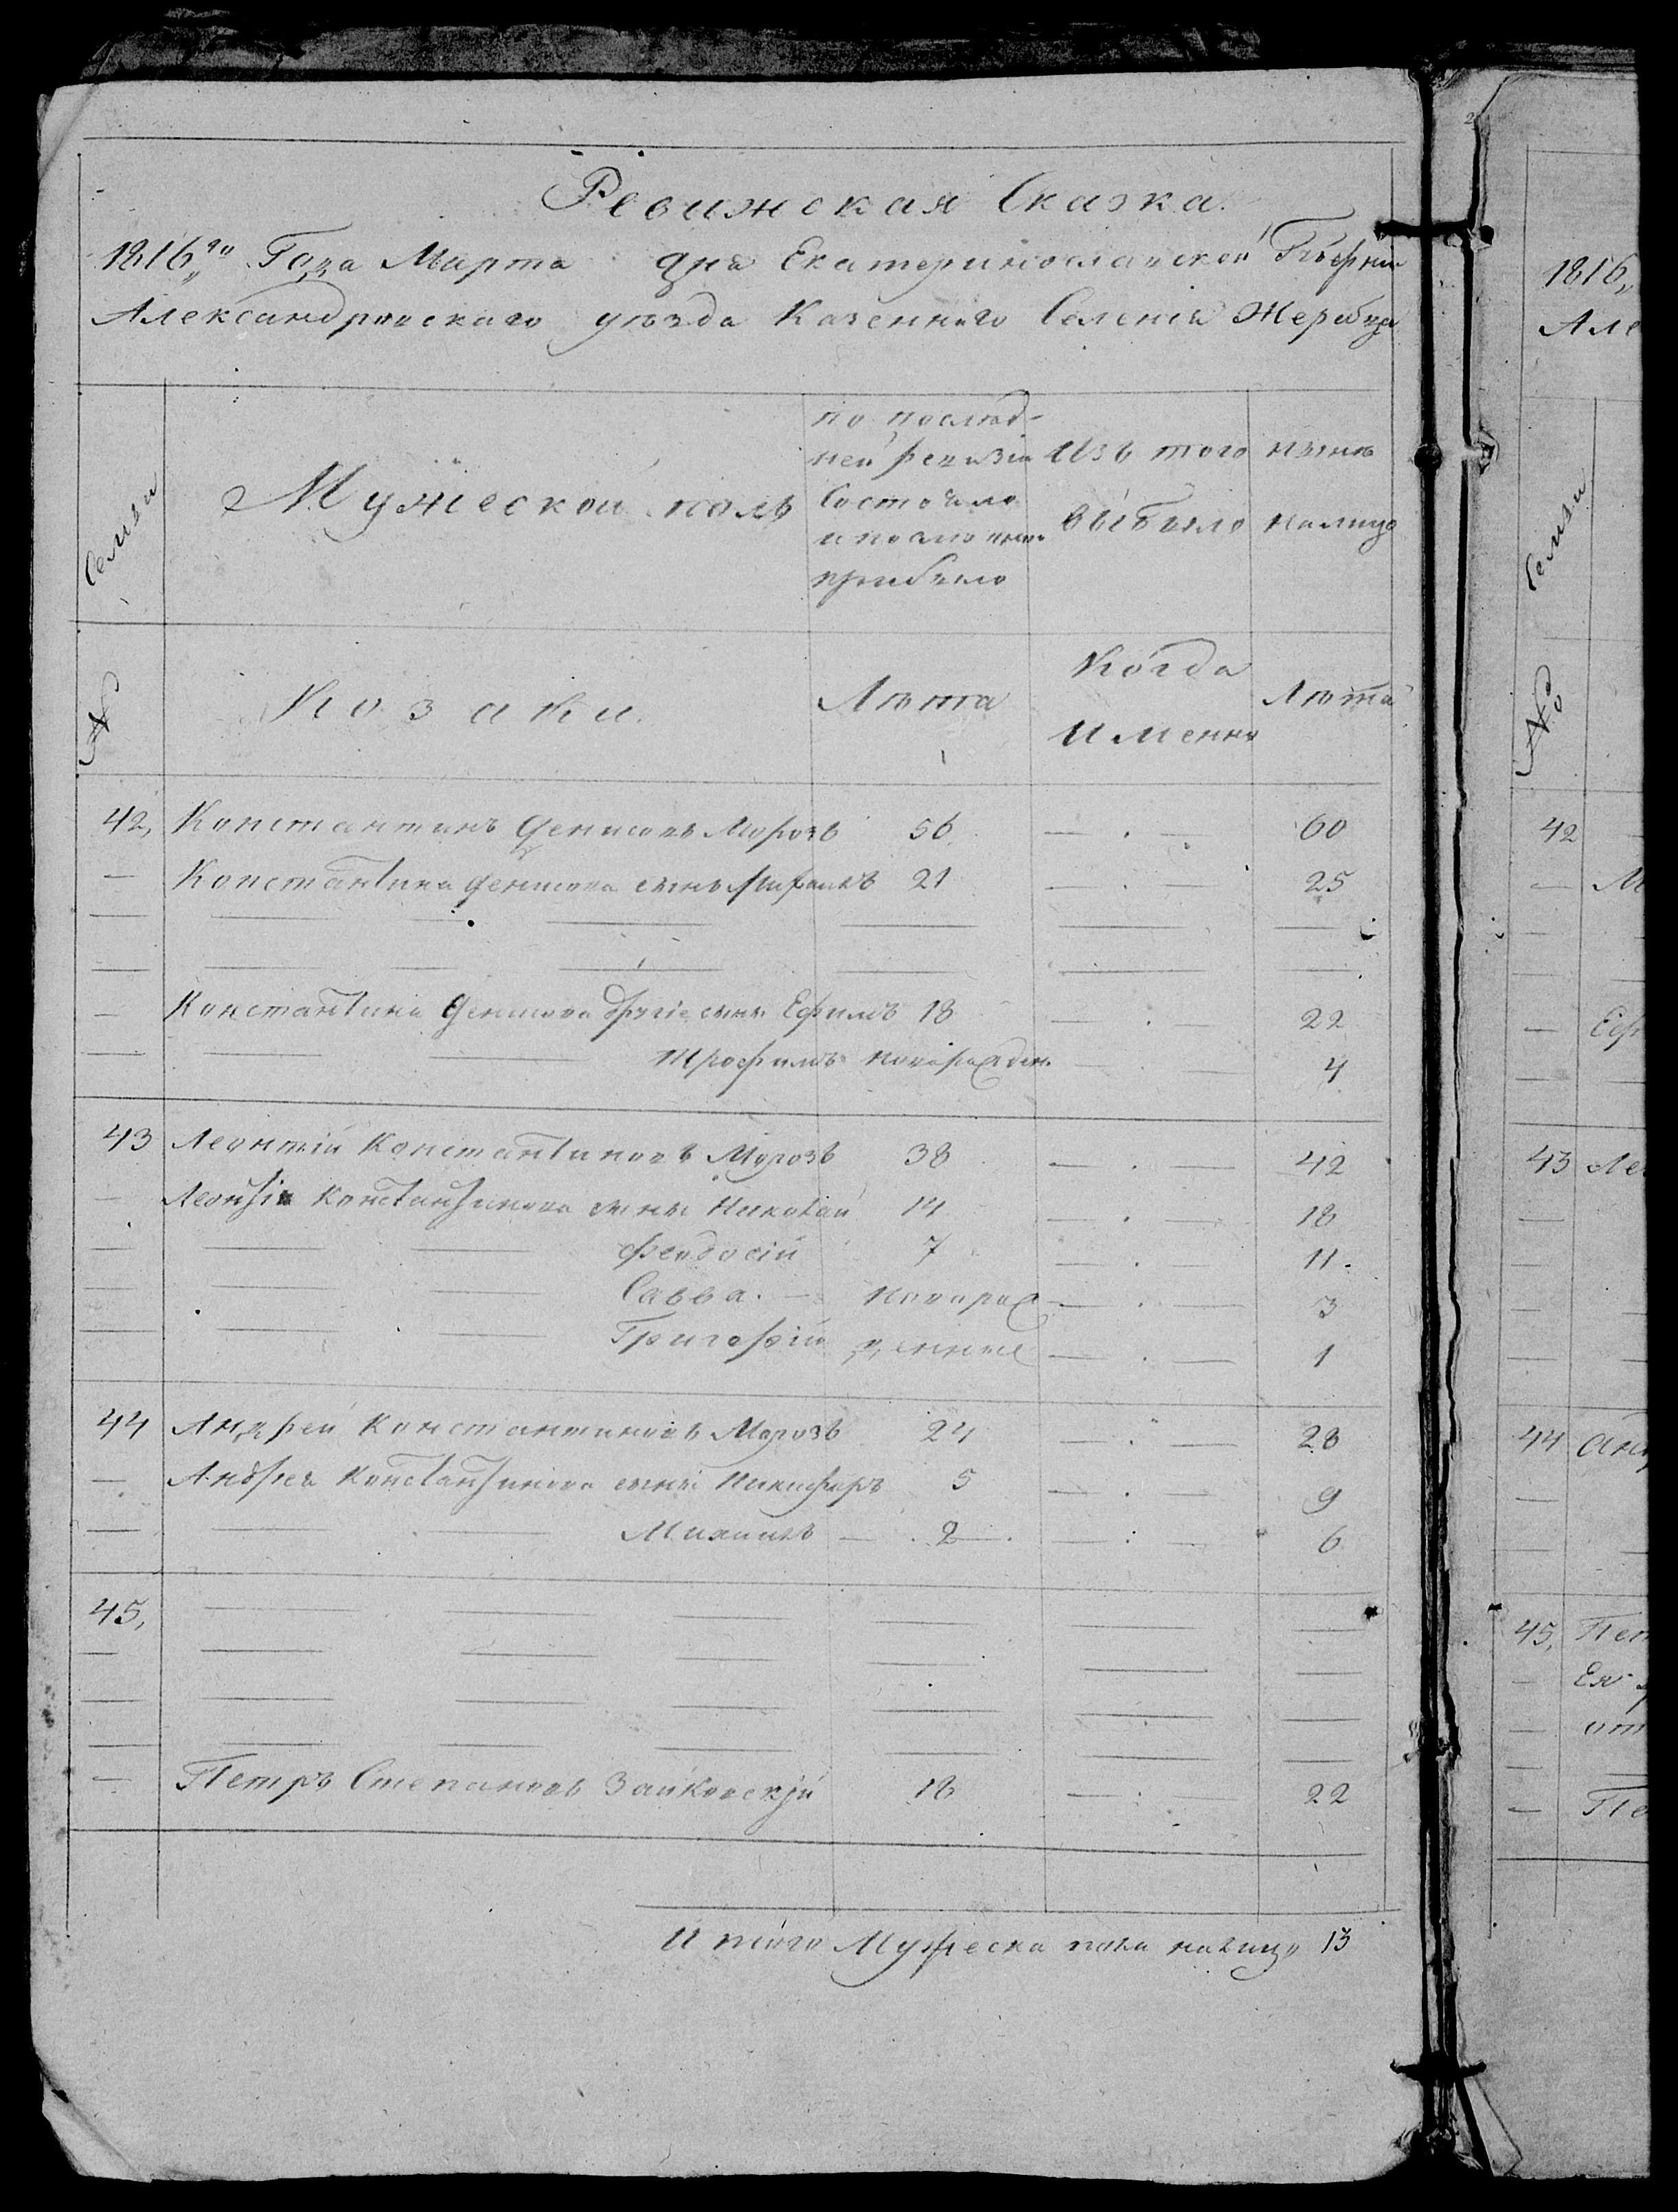 Ревижская Сказка.
1816го Года Марта дня Екатеринославской Губернiи
Александровскаго уѣзда Казенного Селенiя Жеребца
Семьи
Мужескои полъ
по послѣд-
ней ревизiи
состояло
и после оной
прибыло
Изъ того
выбыло
нынѣ
налицо
№
Козаки.
Лѣта
Когда
Именно
Лѣта
42, Константинъ Денисовъ Морозъ 56 60
Константина Денисова сынъ 21 25
Константина Денисова другiе сыны Ефимъ 18 22
Трофимъ новорожден. 4
43 Леонтiй Константиновъ Морозъ 38 42
Леонтiя Константинова сыны Николай 14 18
Феодосiй 7 11.
Савва. новорож 3
Григорiй денные 1
44 Андрей Константиновъ Морозъ 24 28
Андрея Константинова сыны Никифоръ 5 9
Михаилъ 2 6
45,
Петръ Степановъ Зайковскiй 18 22
Итого Мужеска пола налицо 13
1816,
Але
Семьи
№
42
М
Еф
43 Ле
44 Ан
45, Пет
Ея
от
Пе